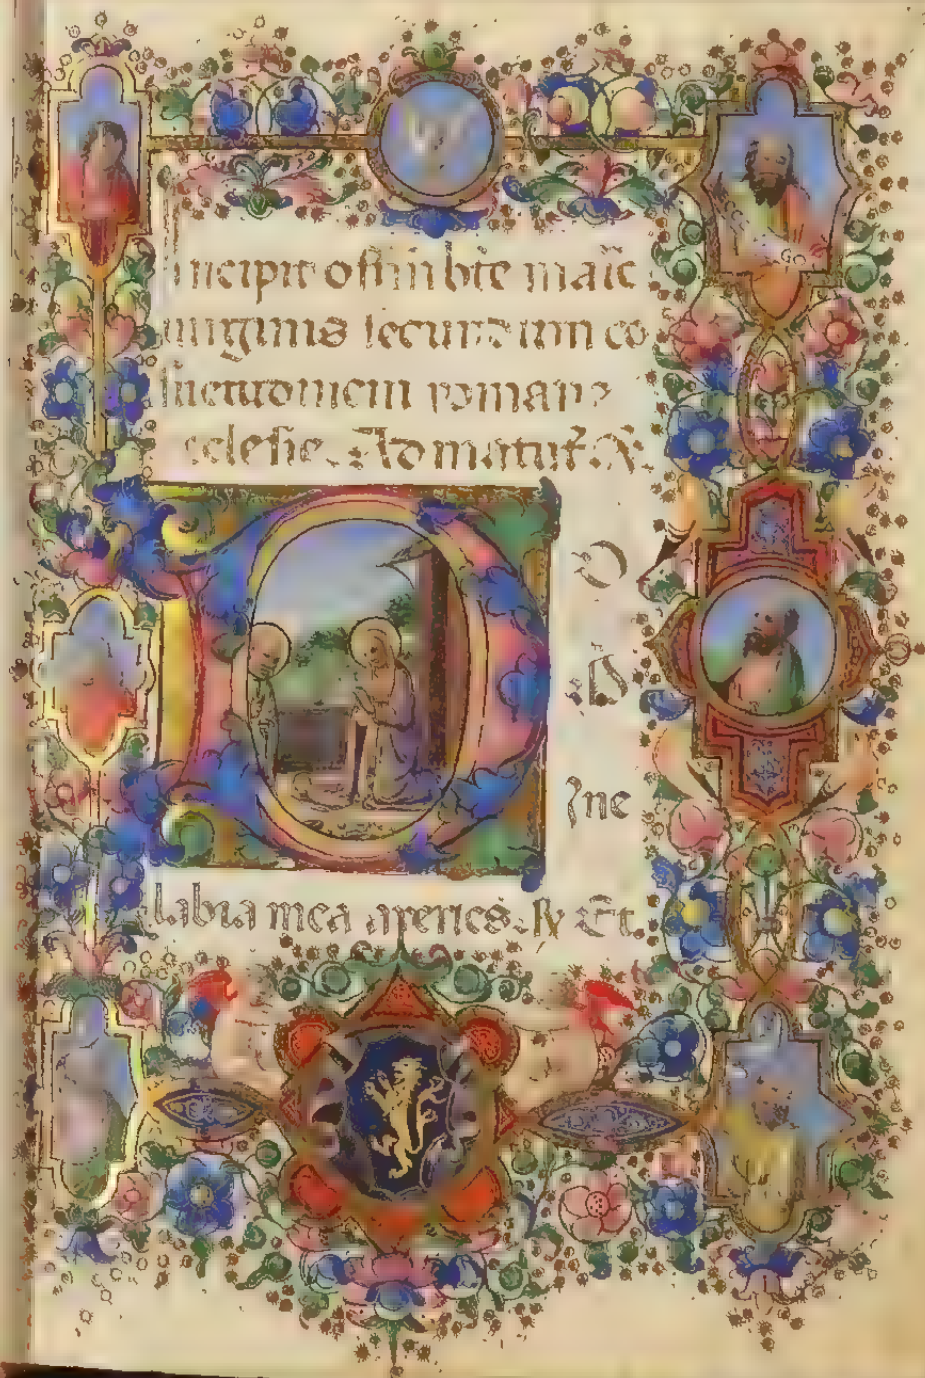 Incipit offm bte marie
uirginis secundum co
suetudinem romane
eclesie. Ad matut. V.
O
D
ne
labia mea aperies. R Et